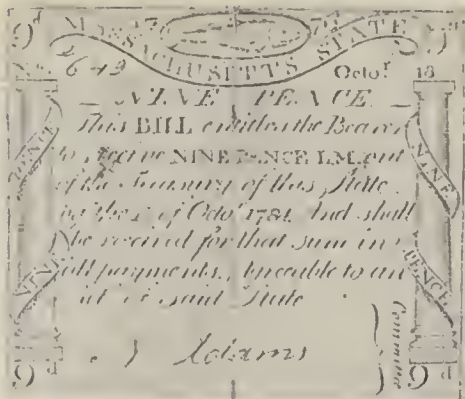 9d 17 78 9d
MASSACHUSETTS STATE
No 2649 Octor 18
NINE PENCE
This BILL entitles the Bearer
to receive NINE PENCE L.M. out
of the Treasury of this State
by the 1 of Octo 1781. And shall
be received for that sum in
all payments, agreeable to an
act of said State
J Adams
Committee
NINE PENCE
NINE PENCE
9d 9d